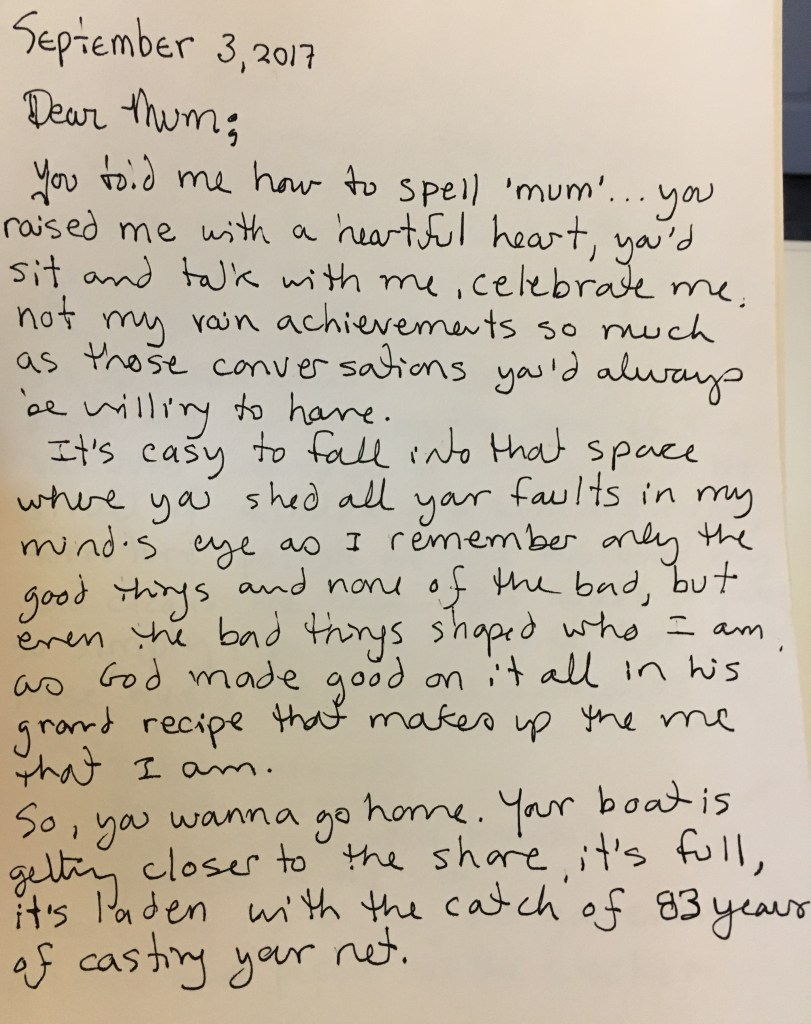 September 3, 2017
Dear Mum;
You told me how to spell 'mum'... you
raised me with a heartful heart, you'd
sit and talk with me, celebrate me,
not my vain achievements so much
as those conversations you'd always
be willing to have.
It's easy to fall into that space
where you shed all your faults in my
mind's eye as I remember only the
good things and none of the bad, but
even the bad things shaped who I am,
as God made good on it all in his
grand recipe that makes up the me
that I am.
So, you wanna go home. Your boat is
getting closer to the shore, it's full,
it's laden with the catch of 83 years
of casting your net.